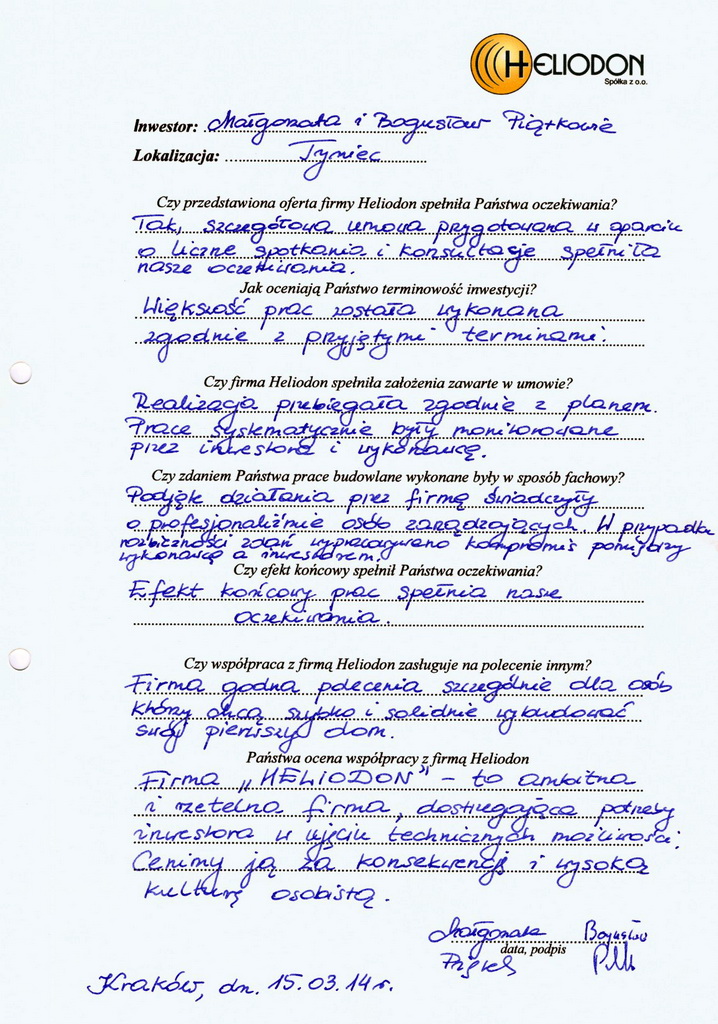 HELIODON
Spółka z o.o.
Inwestor: Małgorzata i Bogusław Piątkowie
Lokalizacja: Tyniec
Czy przedstawiona oferta firmy Heliodon spełniła Państwa oczekiwania?
Tak, szczegółowa umowa przygotowana w oparciu
o liczne spotkania i konsultacje spełniła
nasze oczekiwania.
Jak oceniają Państwo terminowość inwestycji?
Większość prac została wykonana
zgodnie z przyjętymi terminami.
Czy firma Heliodon spełniła założenia zawarte w umowie?
Realizacja przebiegała zgodnie z planem.
Prace systematycznie były monitorowane
przez inwestora i wykonawcę.
Czy zdaniem Państwa prace budowlane wykonane były w sposób fachowy?
Podjęte działania przez firmę świadczyły
o profesjonaliźmie osób zarządzających. W przypadku
rozbieżności zdań wypracowywano kompromis pomiędzy
wykonawcą a inwestorem.
Czy efekt końcowy spełnił Państwa oczekiwania?
Efekt końcowy prac spełnia nasze
oczekiwania.
Czy współpraca z firmą Heliodon zasługuje na polecenie innym?
Firma godna polecenia szczególnie dla osób
którzy chcą szybko i solidnie wybudować
swój pierwszy dom.
Państwa ocena współpracy z firmą Heliodon
Firma „HELIODON" - to ambitna
i rzetelna firma, dostrzegająca potrzeby
inwestora w ujęciu technicznych możliwości.
Cenimy ją za konsekwencję i wysoką
kulturę osobistą.
Małgorzata Bogusław
data, podpis
Kraków, dn. 15.03.14r.